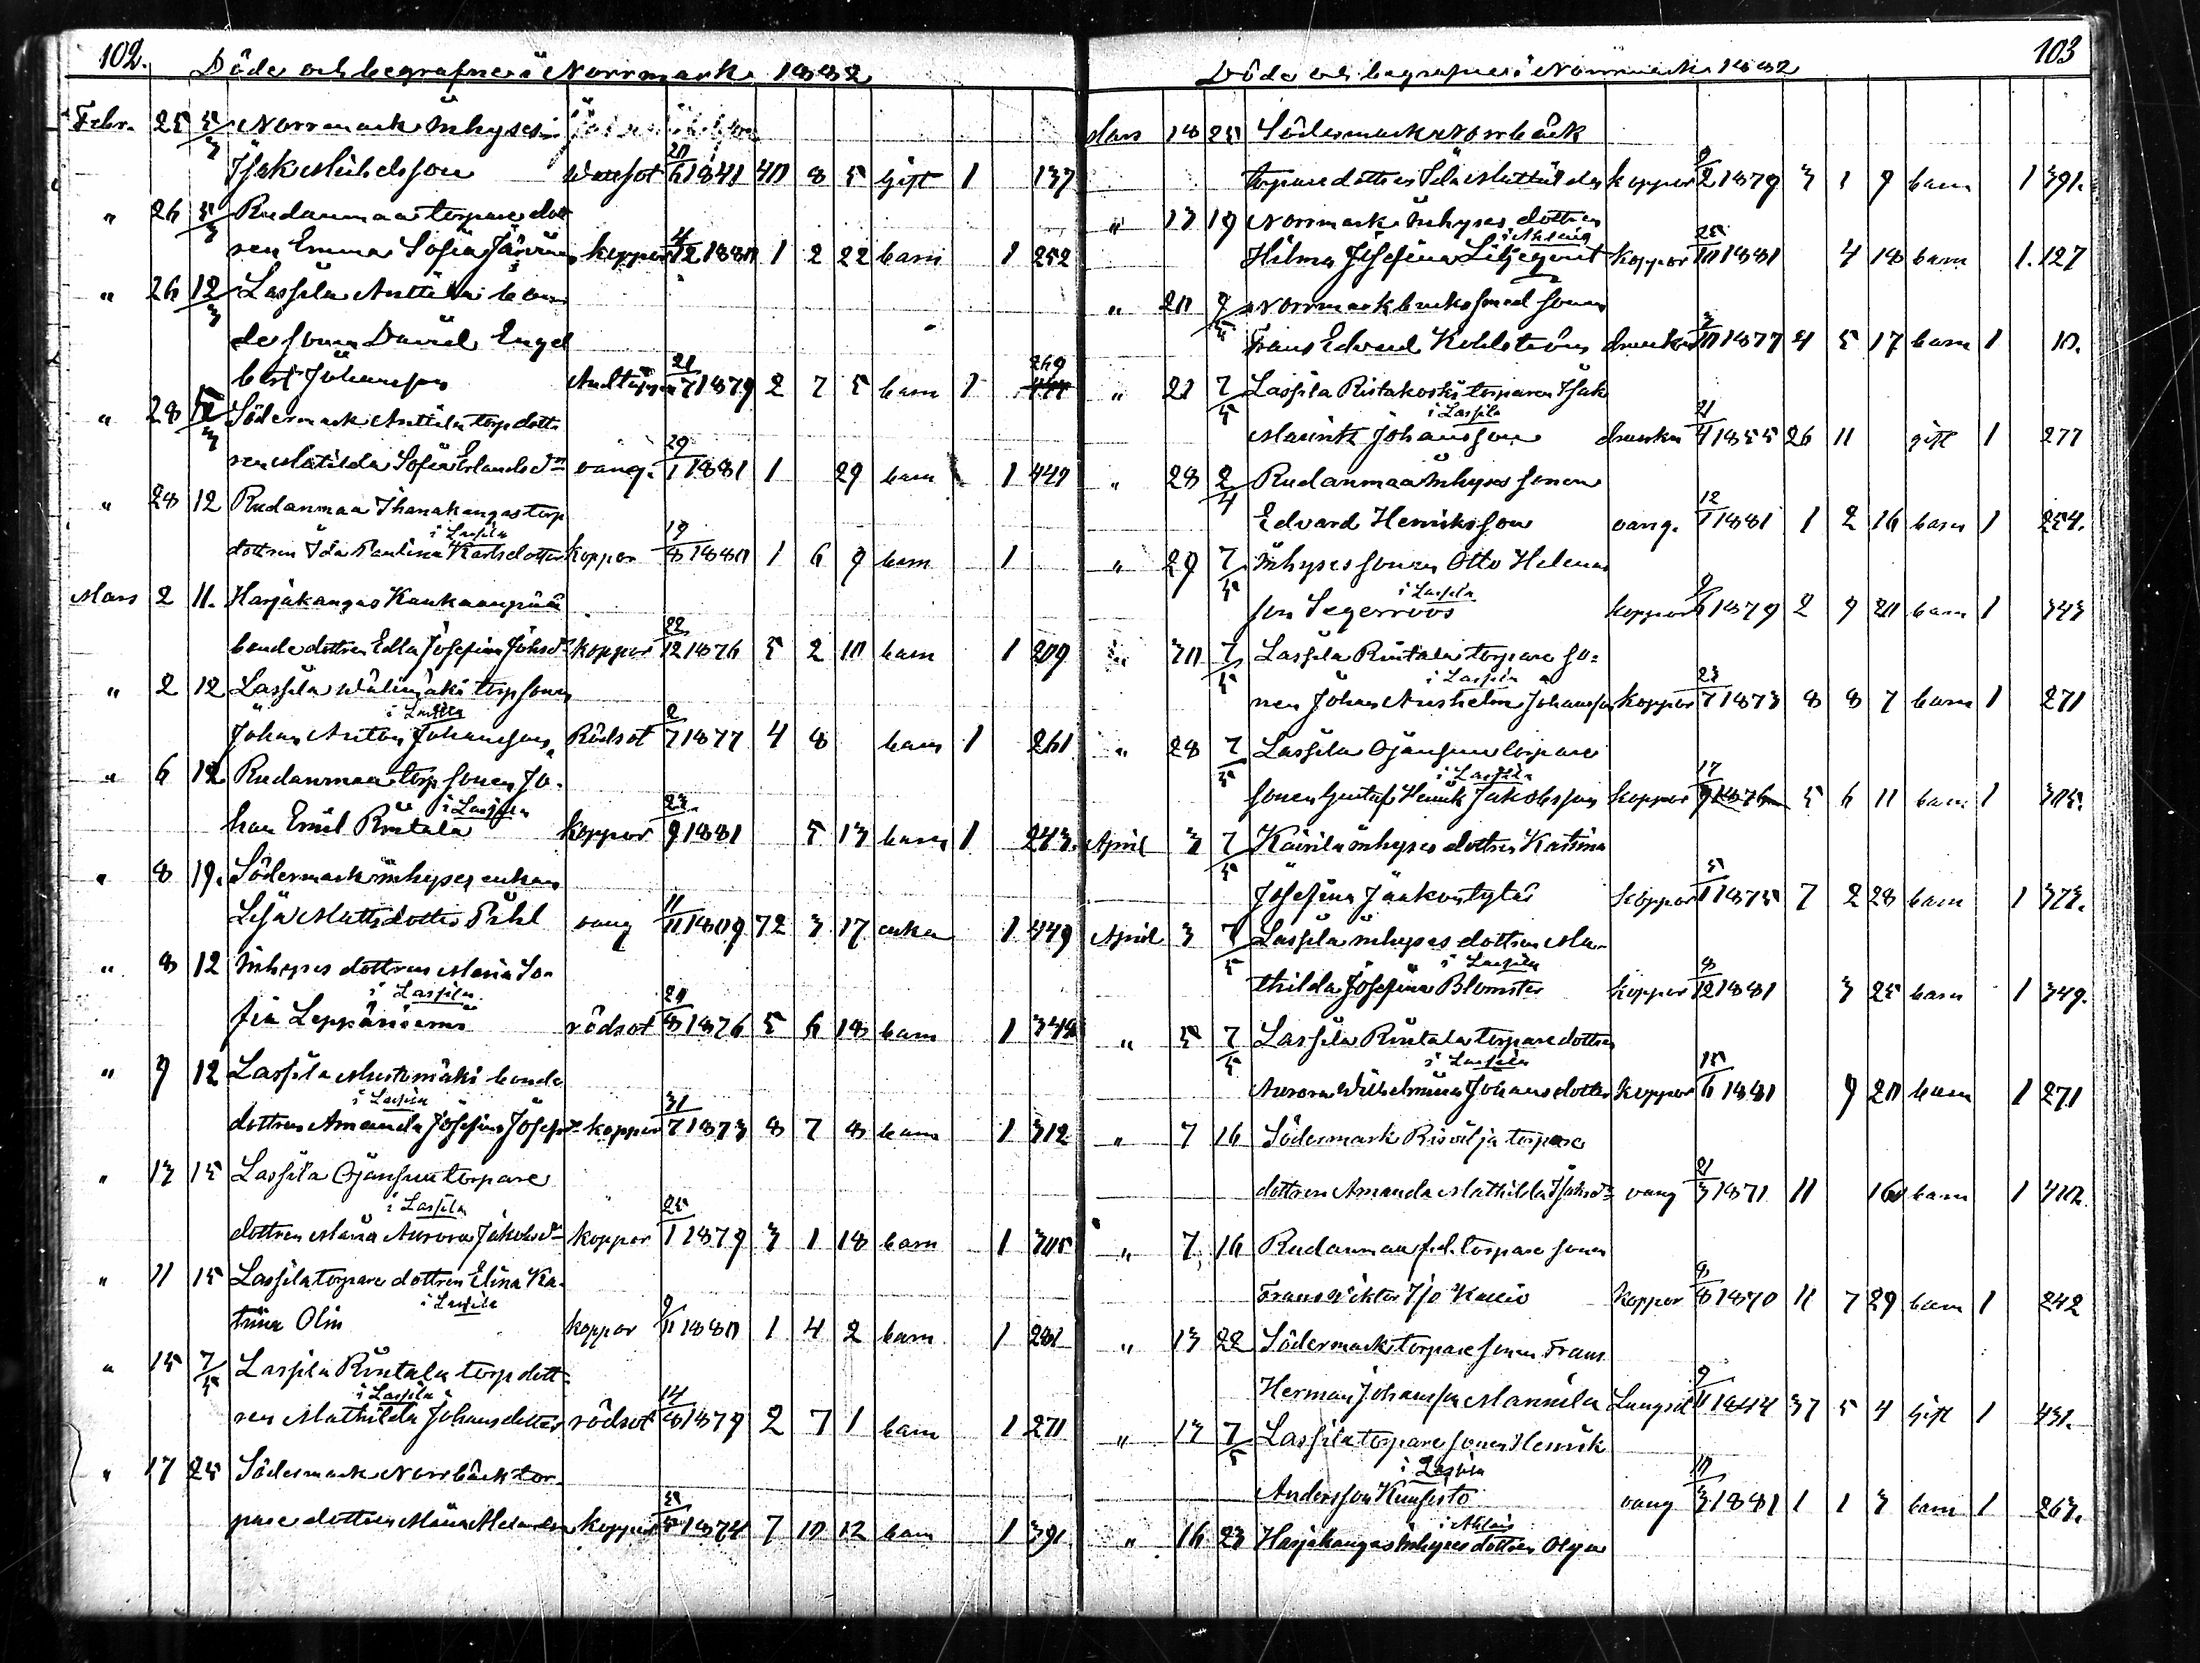 102.
Döde och begrafne i Norrmark 1882
Febr. 25 5/3 Norrmark inhyses
Isak Michelsson watsot 20/6 1841 40 8 5 gift 1 137
" 26 5/3 Rudanmaa torpare dott
ren Emma Sofia Järvinen koppor 4/12 1880 1 2 22 barn 1 252
" 26 12/3 Lassila Anttila bon
de sonen David Engel
bert Johansson Andtäppa 21/7 1879 2 7 5 barn 1 269
" 28 12/3 Södermark Anttila torp dott
ren Matilda Sofia Erlandsdr vang. 29/1 1881 1 29 barn 1 449
" 28 12 Rudanmaa Ihanakangas torp
i Lassila
dottren Ida Paulina Karlsdotter koppor 19/8 1880 1 6 9 barn 1
Mars 2 11. Harjakangas Kaukaanpää
bonde dottren Edla Josefina Johsdr koppor 22/12 1876 5 2 10 barn 1 209
" 2 12 Lassila Wälimäki torp sonen
i Lassila
Johan Anton Johansson Rödsot 2/7 1877 4 8 barn 1 261
" 6 12 Rudanmaa torp sonen Jo-
i Lassila
han Emil Rintala koppor 23/9 1881 5 13 barn 1 243.
" 8 19. Södermark inhyses enkan
Lisa Mattsdotter Påhl vang 11/11 1809 72 3 17 enka 1 449
" 8 12 Inhyses dottren Maria So-
i Lassila
fia Leppäniemi rödsot 20/8 1876 5 6 18 barn 1 342
" 9 12 Lassila Mustamäki bonde
i Lassila
dottren Amanda Josefina Josefsdr koppor 31/7 1873 8 7 8 barn 1 312
" 13 15 Lassila Ojansuu torpare
i Lassila
dottren Maria Aurora Jakobsdr koppor 25/1 1879 3 1 18 barn 1 305
" 11 15 Lassila torpare dottren Elina Ka-
i Lassila
trina Olin koppor 9/11 1880 1 4 2 barn 1 281
" 15 7/5 Lassila Rintala torp dott-
i Lassila
ren Mathilda Johansdotter rödsot 14/8 1879 2 7 1 barn 1 271
" 17 25 Södermark Norrbäck tor-
pare dottren Maria koppor 5/5 1874 7 10 12 barn 1 391
103
Döde och begrafne i Norrmark 1882
Mars 18 25 Södermark Norrbäck
torpare dottren Ida Mattsdr koppor 9/2 1879 3 1 9 barn 1 391.
" 13 19 Norrmark inhyses dottren
Hilma Josefina Liljeqvist koppor 25/10 1881 4 18 barn 1. 127
" 20 7/5 Norrmark bruks smed sonen
Frans Edvard Kohlström drunknat 3/10 1877 4 5 17 barn 1 10.
" 21 7/5 Lassila Ristakoski torparen Isak
i Lassila
Mauritz Johansson drunkn 21/4 1855 26 11 gift 1 277
" 28 2/4 Rudanmaa inhyses sonen
Edvard Henriksson vang. 12/1 1881 1 2 16 barn 1 254.
" 29 7/5 Inhyses sonen Otto Helenas
i Lassila
son Segerroos koppor 9/6 1879 2 9 20 barn 1 343
" 30 7/5 Lassila Rintala torpare so-
i Lassila
nen Johan Anshelm Johansson koppor 23/7 1873 8 8 7 barn 1 271
" 28 7/5 Lassila Ojansuu torpare
i Lassila
sonen Gustaf Henrik Jakobsson koppor 17/9 1876 5 6 11 barn 1 305.
April 3 7/5 Kairila inhyses dottren Katrina
Josefina Jaakontytär koppor 5/1 1875 7 2 28 barn 1 373.
April 3 7/5 Lassila inhyses dottren Ma-
i Lassila
thilda Josefina Blomster koppor 8/12 1881 3 25 barn 1 349.
" 5 7/5 Lassila Rintala torpare dottren
i Lassila
Aurora Wilhelmina Johansdotter koppor 15/6 1881 9 20 barn 1 271
" 7 16 Södermark Risvilja torpare
dottren Amanda Mathilda Isaksdr vang 21/3 1871 11 16 barn 1 402.
" 7 16 Rudanmaa f.d. torpare sonen
Frans Wiktor Iso Kallio koppor 9/8 1870 11 7 29 barn 1 242
" 13 22 Södermark torpare sonen Frans
Herman Johansson Mannila Lungsot 9/11 1844 37 5 4 gift 1 431.
" 13 7/5 Lassila torpare sonen Henrik
i Lassila
Andersson Kuusisto vang 10/3 1881 1 1 3 barn 1 267.
" 16 23 Harjakangas inhyses dottren Olga